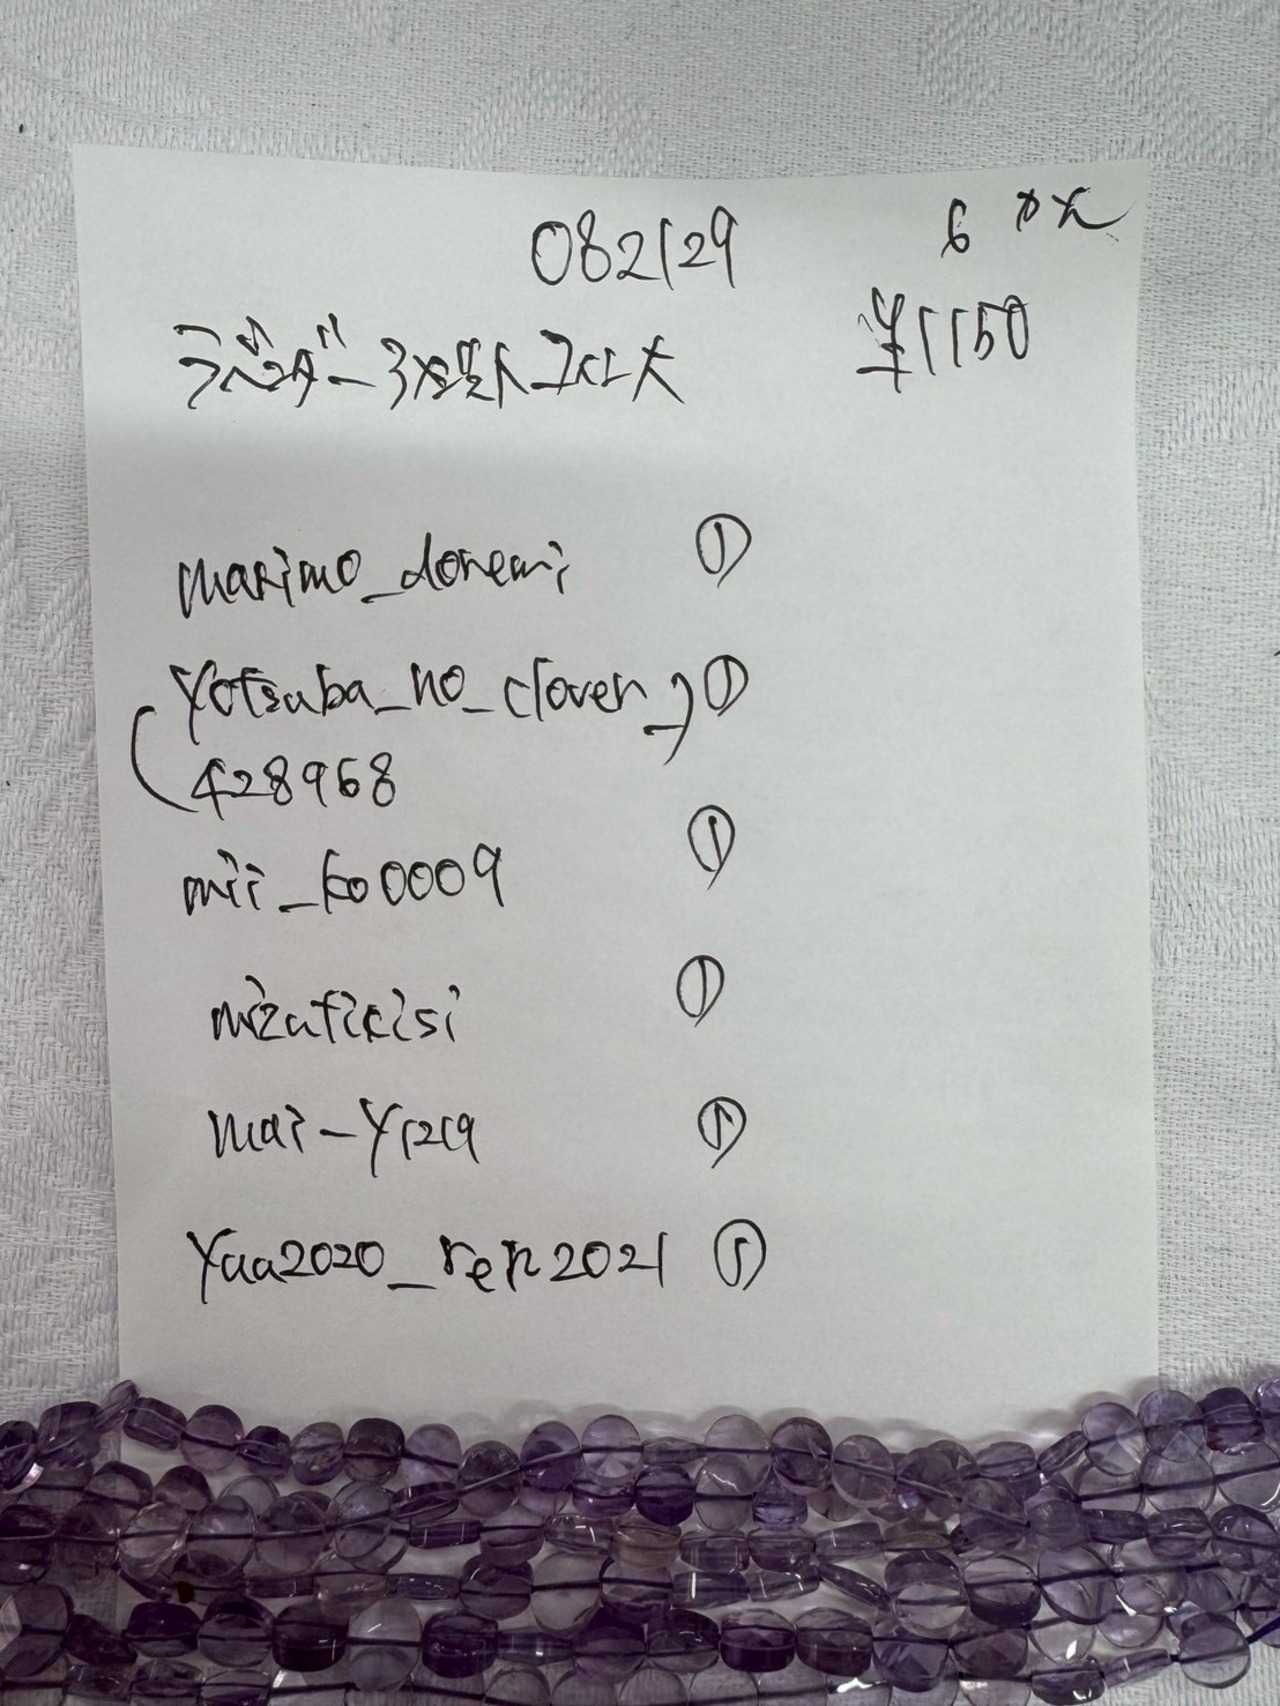 082129
6
¥1150
marimo_doremi ①
yotsuba_no_clover_ ①
428968
mii_ko0009 ①
mizuticisi ①
mai-y1219 ①
yaa2020_ren2021 ①